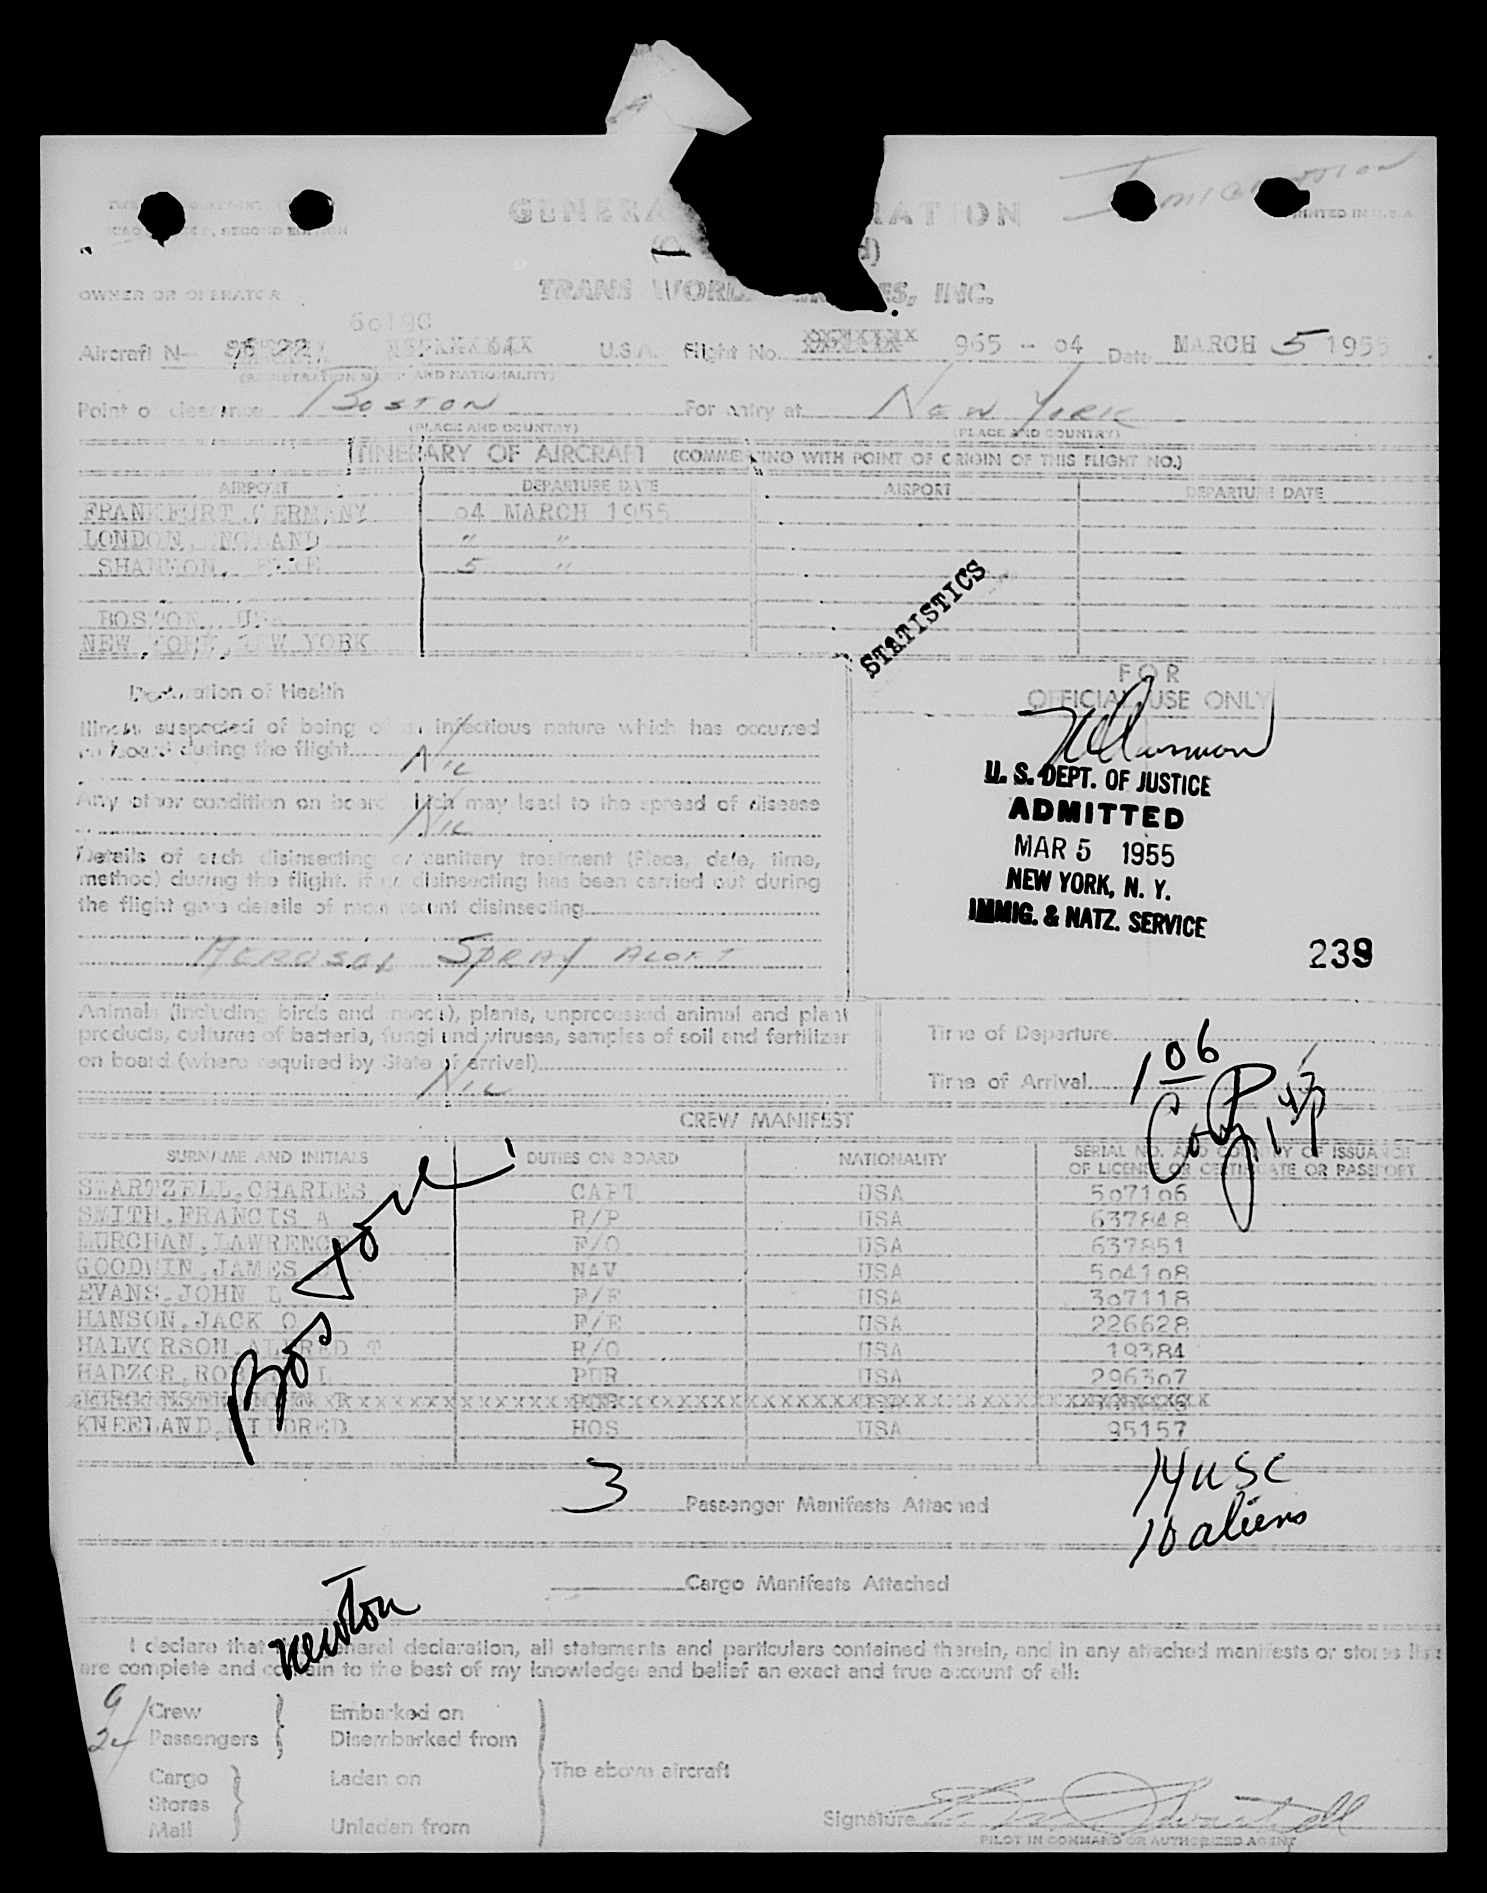 Immigration
SECOND EDITION
PRINTED IN U.S.A.
OWNER OR OPERATOR
TRANS WORLD INC.
6019C
Aircraft N- U.S.A. Flight No. 965 - 04 Date MARCH 5 1955
(REGISTRATION MARKS AND NATIONALITY)
Point of clearance BOSTON For entry at NEW YORK
(PLACE AND COUNTRY) (PLACE AND COUNTRY)
ITINERARY OF AIRCRAFT (COMMENCING WITH POINT OF ORIGIN OF THIS FLIGHT NO.)
AIRPORT DEPARTURE DATE AIRPORT DEPARTURE DATE
FRANKFURT, GERMANY 04 MARCH 1955
LONDON, ENGLAND " "
SHANNON, 5 "
BOSTON,
NEW YORK, NEW YORK
STATISTICS
Declaration of Health
Illness suspected of being of an infectious nature which has occurred
on board during the flight
NIL
Any other condition on board which may lead to the spread of disease
NIL
Details of each disinsecting or sanitary treatment (Place, date, time,
method) during the flight. If no disinsecting has been carried out during
the flight give details of most recent disinsecting
AEROSOL SPRAY ALOFT
FOR
OFFICIAL USE ONLY
U. S. DEPT. OF JUSTICE
ADMITTED
MAR 5 1955
NEW YORK, N. Y.
IMMIG. & NATZ. SERVICE
239
Animals (including birds and insects), plants, unprocessed animal and plant
products, cultures of bacteria, fungi and viruses, samples of soil and fertilizer
on board (where required by State of arrival)
NIL
Time of Departure
Time of Arrival 106
CREW MANIFEST
SURNAME AND INITIALS DUTIES ON BOARD NATIONALITY SERIAL NO. AND COUNTRY OF ISSUANCE
OF LICENSE OR CERTIFICATE OR PASSPORT
STARTZELL, CHARLES CAPT USA 507106
SMITH, FRANCIS A R/P USA 637848
MURCHAN, LAWRENCE F/O USA 637851
GOODWIN, JAMES NAV USA 504108
EVANS, JOHN L F/E USA 307118
HANSON, JACK O F/E USA 226628
HALVORSON, ALFRED T R/O USA 19384
HADZOR, L PUR USA 296307
KNEELAND, MILDRED HOS USA 95157
Bos
3 Passenger Manifests Attached
14 USC
10 aliens
Cargo Manifests Attached
Newton
I declare that general declaration, all statements and particulars contained therein, and in any attached manifests or stores
are complete and contain to the best of my knowledge and belief an exact and true account of all:
9 Crew Embarked on
24 Passengers Disembarked from
The above aircraft
Cargo Laden on
Stores
Mail Unladen from
Signature
PILOT IN COMMAND OR AUTHORIZED AGENT